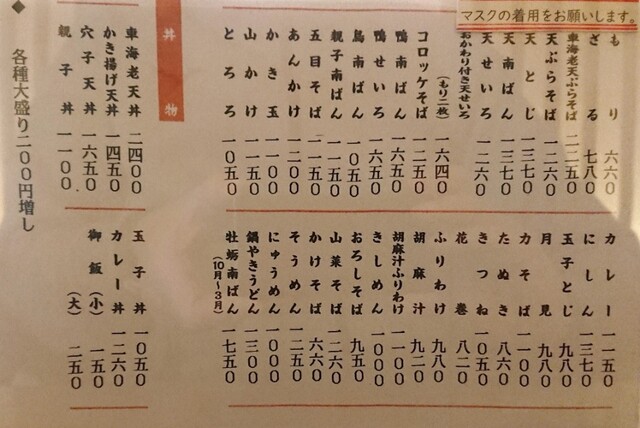 マスクの着用をお願いします。
もり 六六〇
ざる 七八〇
車海老天ぷらそば 二二五〇
天ぷらそば 一二六〇
天とじ 一三七〇
天南ばん 一三七〇
天せいろ 一二六〇
おかわり付き天せいろ
(もり二枚) 一六四〇
コロッケそば 一二五〇
鴨南ばん 一六五〇
鴨せいろ 一六五〇
鳥南ばん 一〇五〇
親子南ばん 一一五〇
五目そば 一一五〇
あんかけ 一二〇〇
かき玉 一一〇〇
山かけ 一一五〇
とろろ 一〇五〇
カレー 一一五〇
にしん 一三七〇
玉子とじ 九八〇
月見 九八〇
力そば 一一〇〇
たぬき 八六〇
きつね 一〇五〇
花巻 八二〇
ふりわけ 九八〇
胡麻汁 九二〇
胡麻汁ふりわけ 一一〇〇
きしめん 一〇〇〇
おろしそば 九五〇
山菜そば 一二六〇
かけそば 六六〇
そうめん 一二五〇
にゅうめん 一〇〇〇
鍋やきうどん 一三〇〇
牡蛎南ばん 一七五〇
(10月〜3月)
丼物
車海老天丼 二四〇〇
かき揚げ天丼 一四五〇
穴子天丼 一六五〇
親子丼 一一〇〇
玉子丼 一〇五〇
カレー丼 一二六〇
御飯(小) 一五〇
(大) 二五〇
◆ 各種大盛り二〇〇円増し